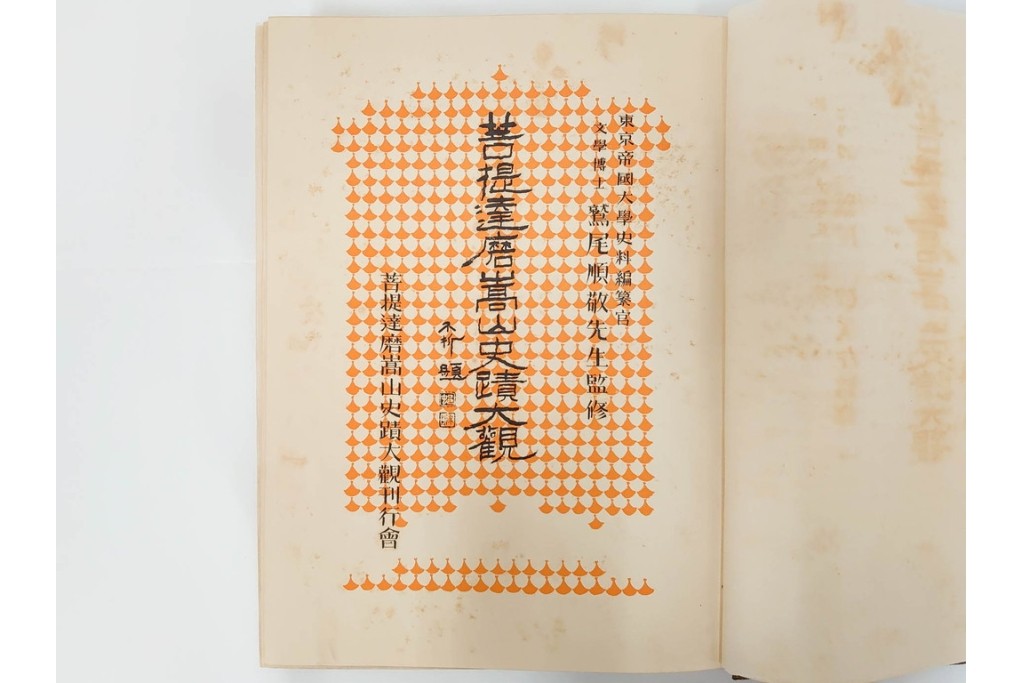 東京帝國大學史料編纂官
文學博士 鷲尾順敬先生監修
菩提達磨嵩山史蹟大觀
不折題
菩提達磨嵩山史蹟大觀刊行會